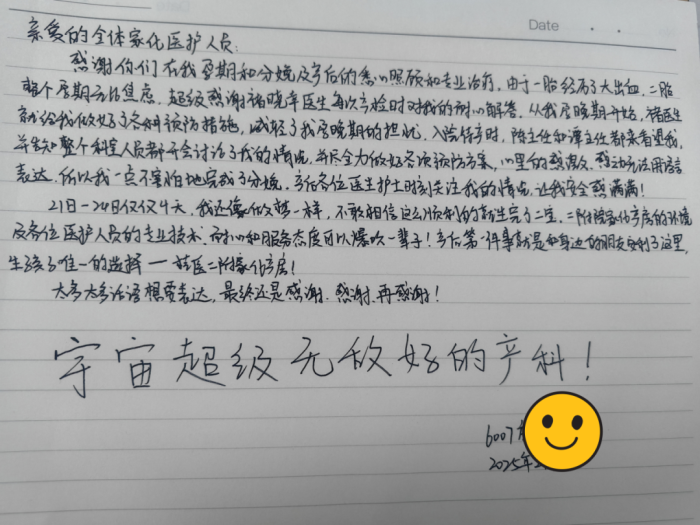 Date
亲爱的全体家化医护人员:
感谢你们在我孕期和分娩及产后的悉心照顾和专业治疗,由于一胎经历了大出血,二胎
整个孕期方法焦虑,超级感谢褚晓丰医生每次产检时对我的耐心解答,从我孕晚期开始,褚医生
就给我做好了各种预防措施,减轻了我孕晚期的担忧,入院待产时,陈主任和谭主任都来看望我,
并告知整个科室人员都开会讨论了我的情况,并尽全力做好各项预防方案,心里的感激、感动无法用言语
表达,所以我一点不害怕地完成了分娩,产后各位医生护士时刻关注我的情况,让我安全感满满!
21日-24日仅仅4天,我还像做梦一样,不敢相信这么顺利的就生完了二宝,二附院家化产房的环境
及各位医护人员的专业技术、耐心和服务态度可以爆吹一辈子!产后第一件事就是和身边的朋友安利了这里,
生孩子唯一的选择——二附家化产房!
太多太多话语想要表达,最终还是感谢、感谢、再感谢!
宇宙超级无敌好的产科!
6007
2025年